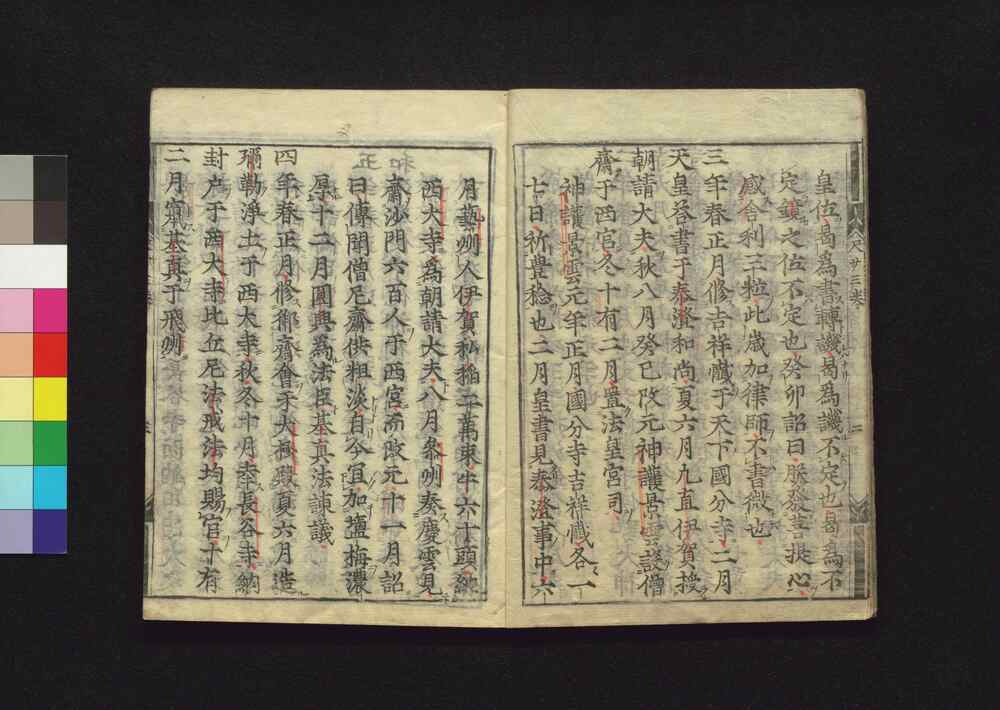 皇位曷為書轉譏曷為譏不定也曷為不
定鏡之位不定也癸卯詔曰朕發菩提心
感舍利三粒此歲加律師不書微也
三年春正月修吉祥懺于天下國分寺二月
天皇答書于泰澄和尚夏六月九直伊賀授
朝請大夫秋八月癸巳改元神護景雲設僧
齋于西宮冬十有二月置法皇宮司
神護景雲元年正月國分寺吉祥懺各一
七日祈豊稔也二月皇書見泰澄事中六
月藝州人伊賀私稲二萬束牛六十頭納
西大寺為朝請大夫八月參州奏慶雲見
齋沙門六百人于西宮而改元十一月詔
曰傳聞僧尼齋供粗淡自今宜加塩梅濃
厚十二月圓興為法臣基真法諌議
四年春正月修御齋會于大極殿夏六月造
彌勒淨土于西大寺秋冬十月幸長谷寺納
封戸于西大寺比丘尼法戒法均賜官十有
二月竄基真于飛州
人尺サ三巻
二